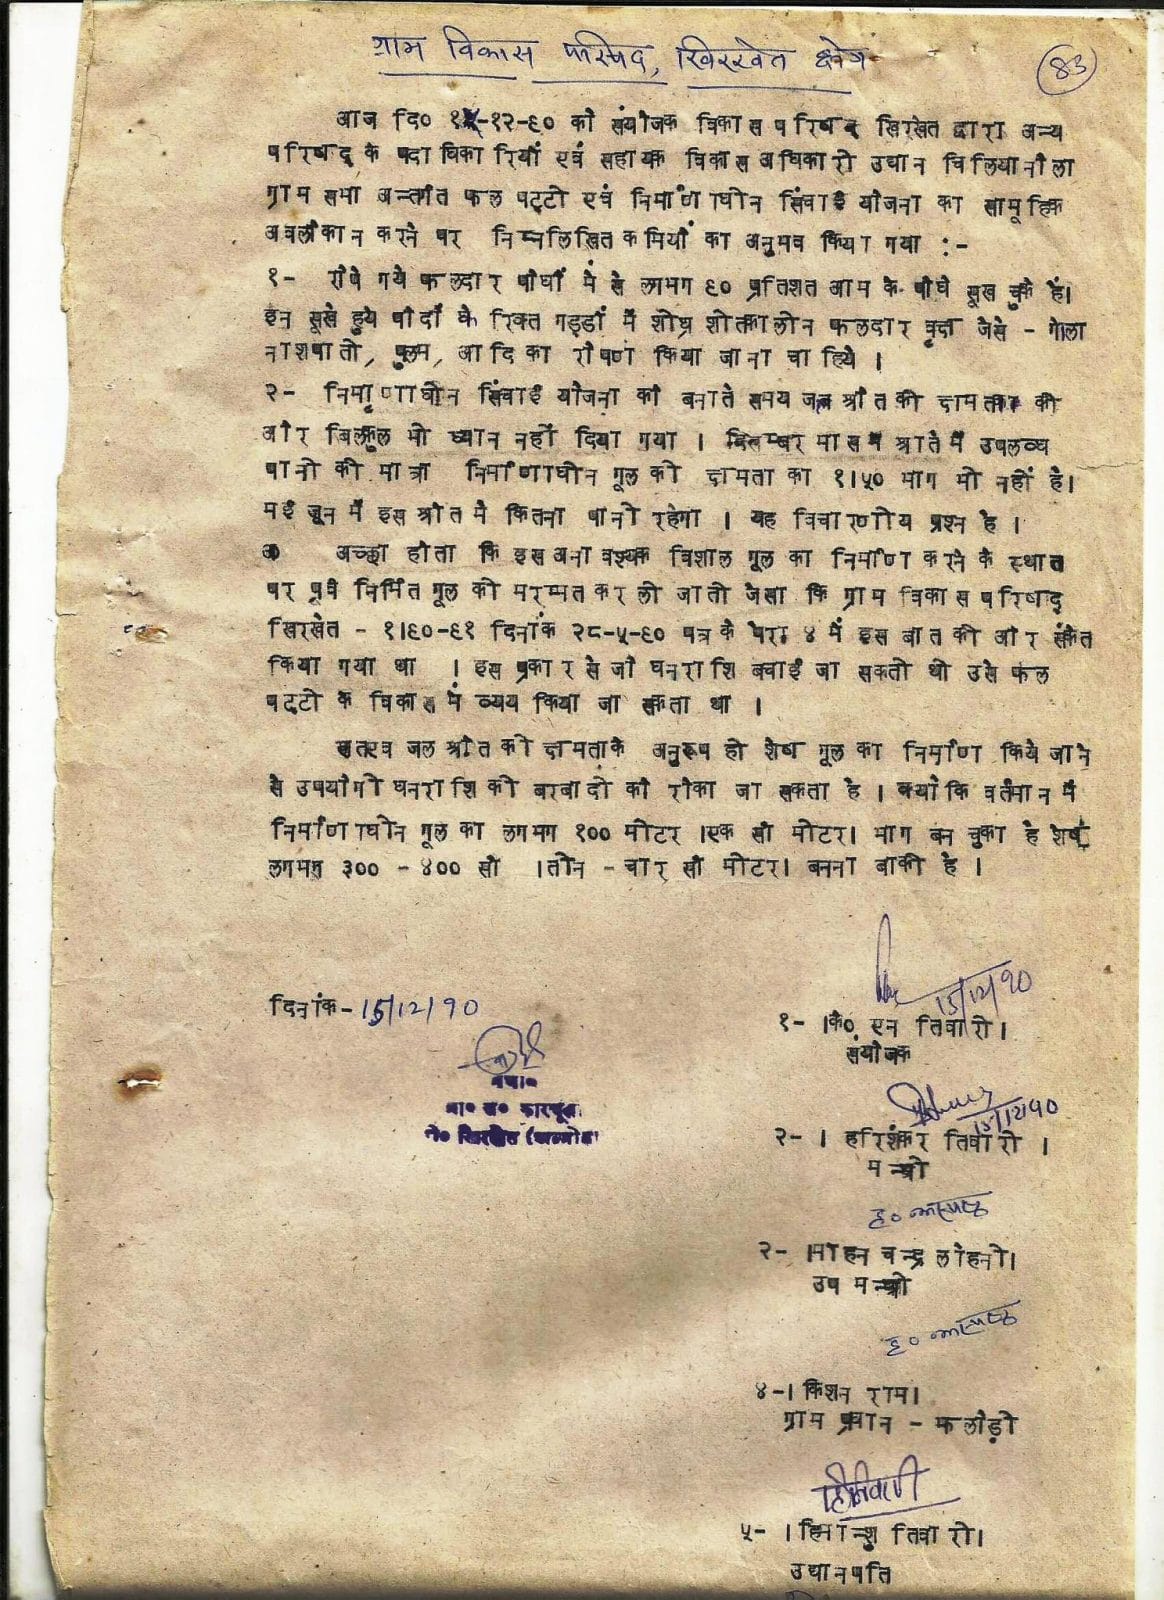 ग्राम विकास परिषद, खिरखेत क्षेत्र
83
आज दि० १५-१२-९० को संयोजक विकास परिषद् खिरखेत द्वारा अन्य
परिषद् के पदाधिकारियों एवं सहायक विकास अधिकारी उद्यान चिलियानौला
ग्राम सभा अन्तर्गत फल पट्टी एवं निर्माणाधीन सिंचाई योजना का सामूहिक
अवलोकन करने पर निम्नलिखित कमियों का अनुभव किया गया :-
१- रोपे गये फलदार पौधों में से लगभग ९० प्रतिशत आम के पौधे सूख चुके हैं।
इन सूखे हुये पौदों के रिक्त गड्डों में शीघ्र शीतकालीन फलदार वृक्ष जैसे - गोला
नाशपाती, पुलम, आदि का रोपण किया जाना चाहिये ।
२- निर्माणाधीन सिंचाई योजना को बनाते समय जल श्रोत की क्षमता की
और बिलकुल भी ध्यान नहीं दिया गया । दिसम्बर मास में श्रोत में उपलब्ध
पानी की मात्रा निर्माणाधीन गूल की क्षमता का १।५० भाग भी नहीं है।
मई जून में इस श्रोत में कितना पानी रहेगा । यह विचारणीय प्रश्न है ।
अच्छा होता कि इस अनावश्यक विशाल गूल का निर्माण करने के स्थान
पर पूर्व निर्मित गूल की मरम्मत कर ली जाती जैसा कि ग्राम विकास परिषद्
खिरखेत - १।९०-९१ दिनांक २८-५-९० पत्र के पैरा ४ में इस बात की ओर संकेत
किया गया था । इस प्रकार से जो धनराशि बचाई जा सकती थी उसे फल
पट्टी के विकास में व्यय किया जा सकता था ।
अतएव जल श्रोत की क्षमता के अनुरूप ही शेष गूल का निर्माण किये जाने
से उपयोगी धनराशि की बरबादी को रोका जा सकता है । क्योंकि वर्तमान में
निर्माणाधीन गूल का लगभग १०० मीटर ।एक सौ मीटर। भाग बन चुका है शेष
लगभग ३०० - ४०० सौ ।तीन - चार सौ मीटर। बनना बाकी है ।
दिनांक- 15/12/90
15/12/90
१- ।के० एन तिवारी।
संयोजक
15/12/90
२- । हरिशंकर तिवारी ।
मन्त्री
ह० अस्पष्ट
२- ।मोहन चन्द्र लोहनी।
उप मन्त्री
ह० अस्पष्ट
४-। किशन राम।
ग्राम प्रधान - कलोड़ी
५- । हिमान्शु तिवारी।
उद्यानपति